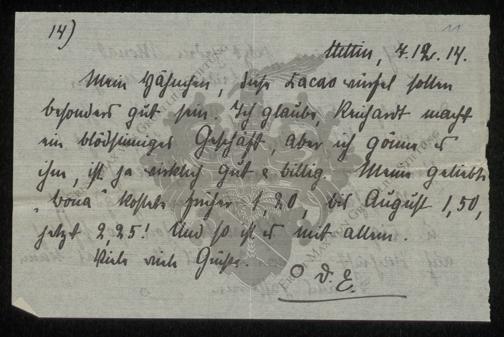 14) 11
Stettin, 7.12.14.
Mein Hähnchen, diese Cacao würfel sollen
besonders gut sein. Ich glaube, Reichardt macht
ein blödsinniges Geschäft, aber ich gönne es
ihm, ist ja wirklich gut & billig. Meine geliebte
"bona" kostete früher 1,20, bis August 1,50,
jetzt 2,25! Und so ist es mit allem.
Viele viele Grüße.
D. E.